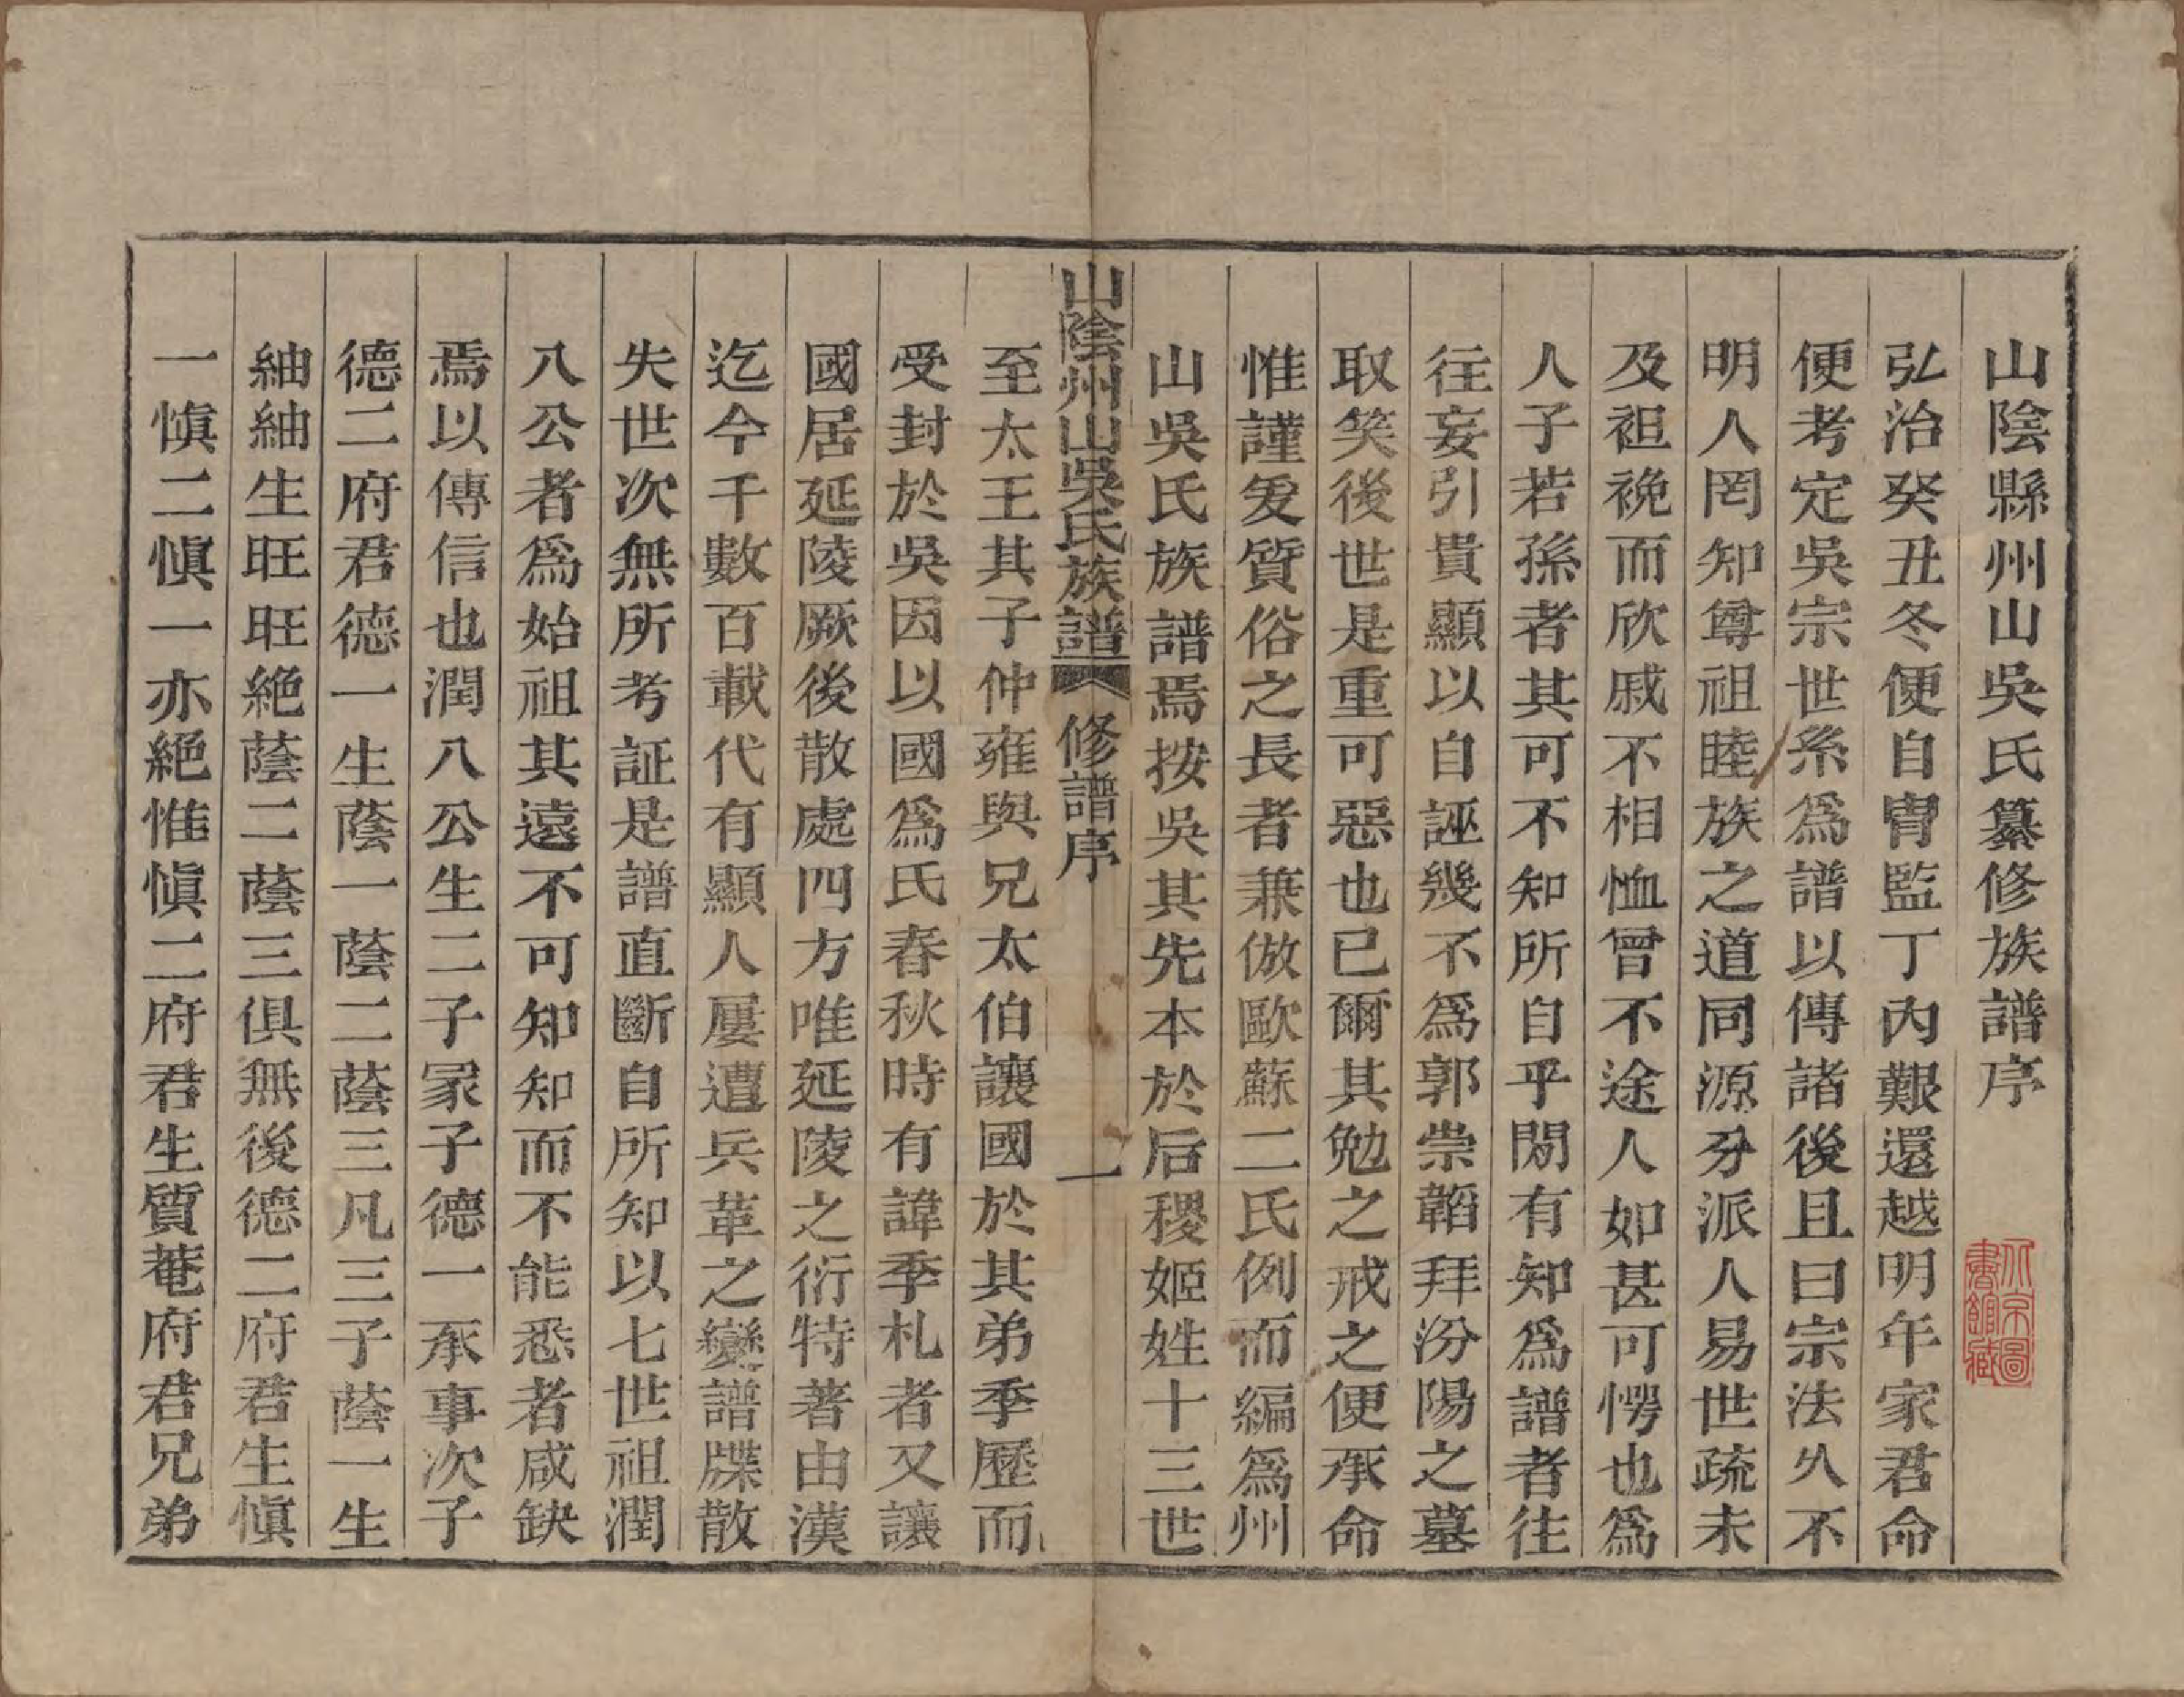 山陰縣州山吳氏纂修族譜序
弘治癸丑冬便自冑監丁內艱還越明年家君命
便考定吳宗世系爲譜以傳諸後且曰宗法久不
明人罔知尊祖睦族之道同源分派人易世疏未
及袒裞而欣戚不相恤曾不途人如甚可愕也爲
人子若孫者其可不知所自乎閒有知爲譜者往
往妄引貴顯以自誣幾不爲郭崇韜拜汾陽之墓
取笑後世是重可惡也已爾其勉之戒之便承命
惟謹爰質俗之長者兼倣歐蘇二氏例而編爲州
山吳氏族譜焉按吳其先本於后稷姬姓十三世
山陰州山吳氏族譜 修譜序 一
至太王其子仲雍與兄太伯讓國於其弟季歷而
受封於吳因以國爲氏春秋時有諱季札者又讓
國居延陵厥後散處四方唯延陵之衍特著由漢
迄今千數百載代有顯人屢遭兵革之變譜牒散
失世次無所考証是譜直斷自所知以七世祖潤
八公者爲始祖其遠不可知知而不能悉者咸缺
焉以傳信也潤八公生二子冢子德一承事次子
德二府君德一生蔭一蔭二蔭三凡三子蔭一生
紬紬生旺旺絕蔭二蔭三俱無後德二府君生愼
一愼二愼一亦絕惟愼二府君生質菴府君兄弟
北京圖
書館藏